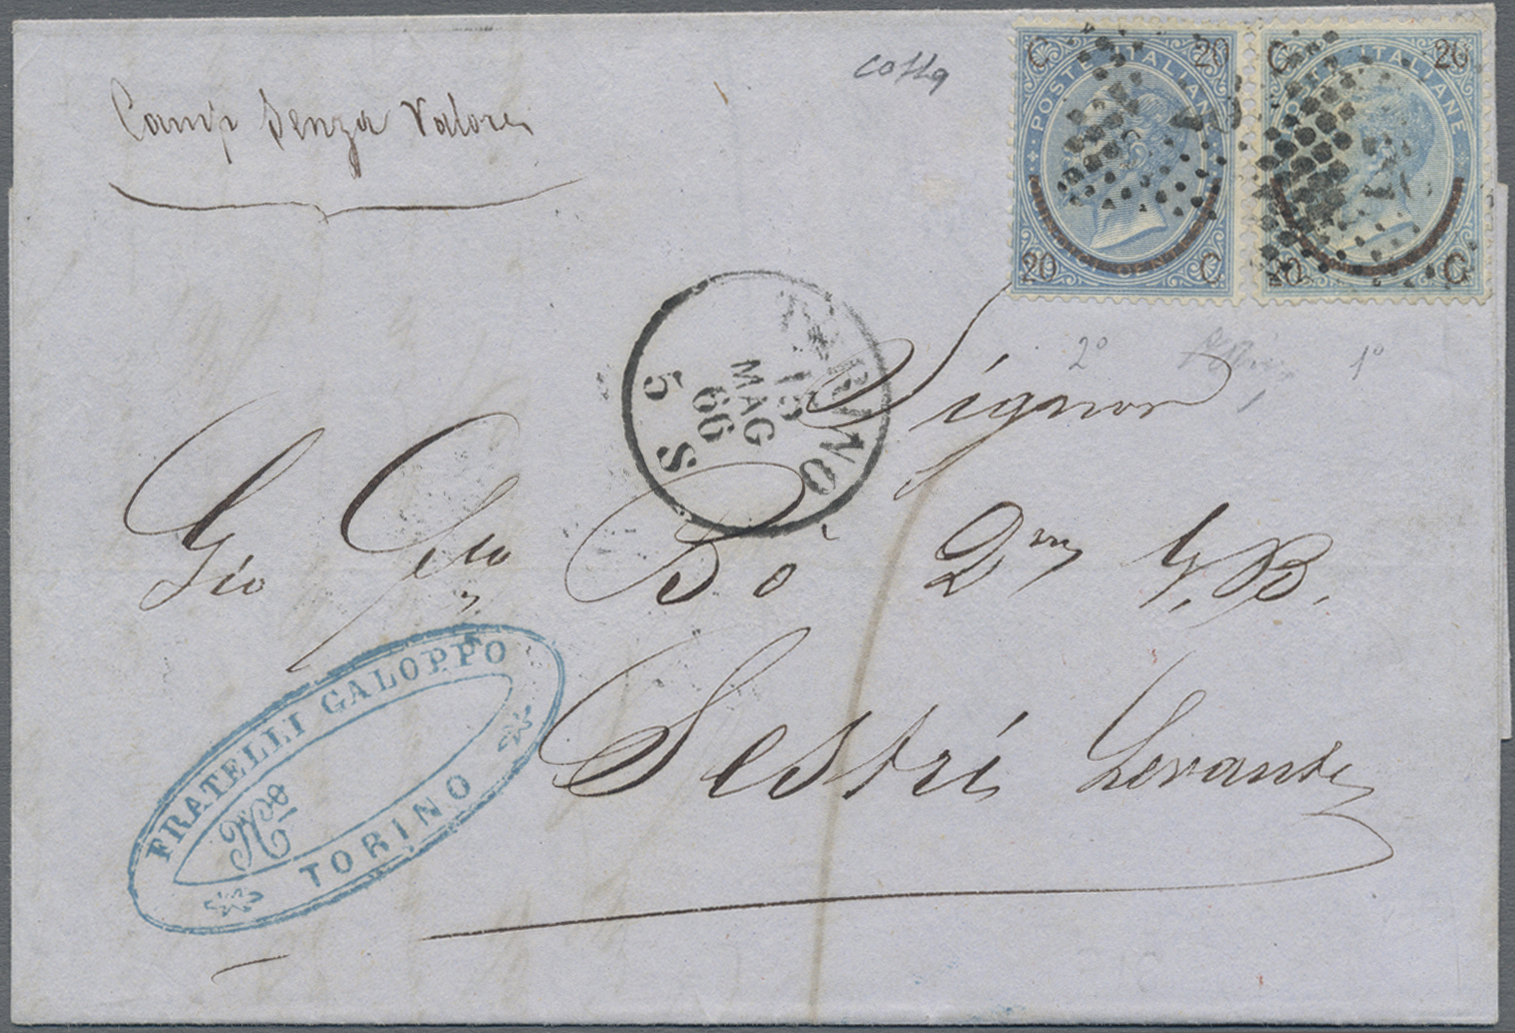 Camp Senza Valore
C 20
POSTE ITALIANE
20 C
C 20
POSTE ITALIANE
20 C
2º
1º
TORINO
15
MAG
66
5 S
Signor
Gio
Bò Qm G, B,
Sestri Levante
FRATELLI GALOPPO
TORINO